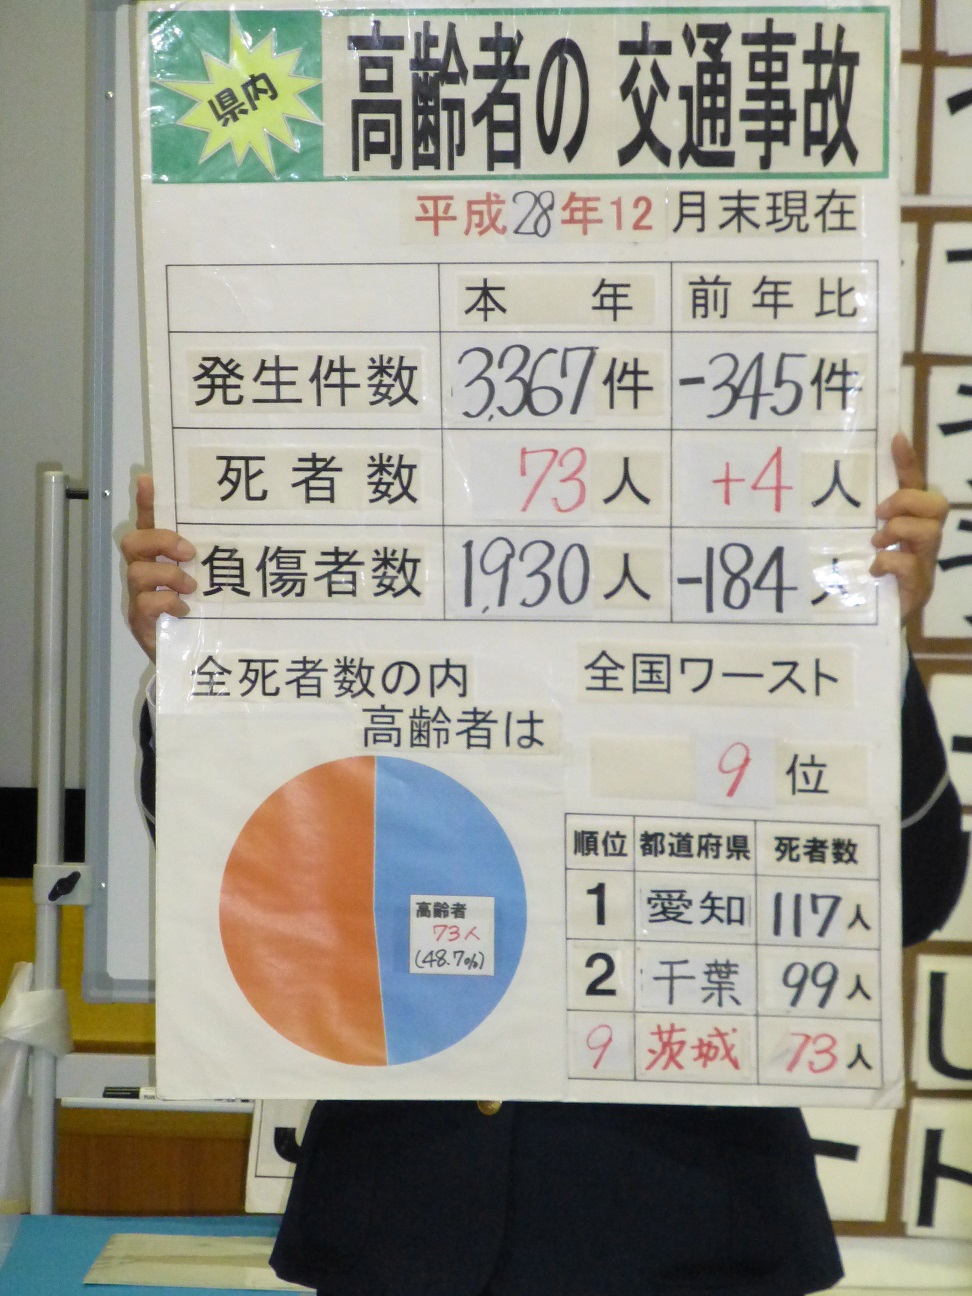 県内
高齢者の 交通事故
平成28年12月末現在
本 年 前年比
発生件数 3,367件 -345件
死者数 73人 +4人
負傷者数 1,930人 -184人
全死者数の内
高齢者は
高齢者
73人
(48.7%)
全国ワースト
9位
順位 都道府県 死者数
1 愛知 117人
2 千葉 99人
9 茨城 73人